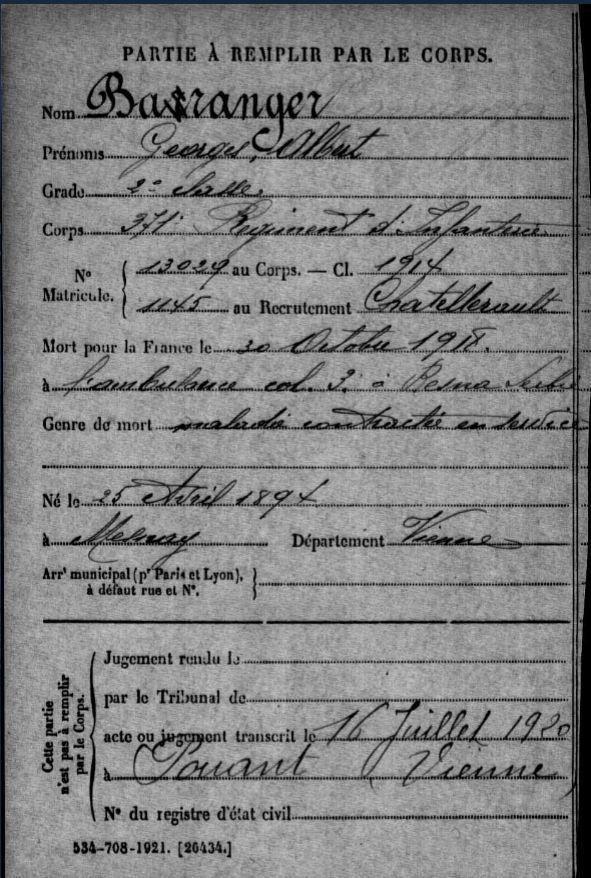 PARTIE À REMPLIR PAR LE CORPS.
Nom Barranger
Prénoms Georges, Albert
Grade 2e classe.
Corps 371e Régiment d'Infanterie
No Matricule. 13029 au Corps. — Cl. 1914
1145 au Recrutement Chatellerault
Mort pour la France le 30 Octobre 1918.
à l'ambulance col. 3. à Resna Serbie
Genre de mort maladie contractée en service
Né le 25 Avril 1894
à Département Vienne
Arrt municipal (pr Paris et Lyon),
à défaut rue et No.
Cette partie n'est pas à remplir par le Corps.
Jugement rendu le
par le Tribunal de
acte ou jugement transcrit le 16 Juillet 1920
à Pouant (Vienne)
No du registre d'état civil
534-708-1921. [26434.]